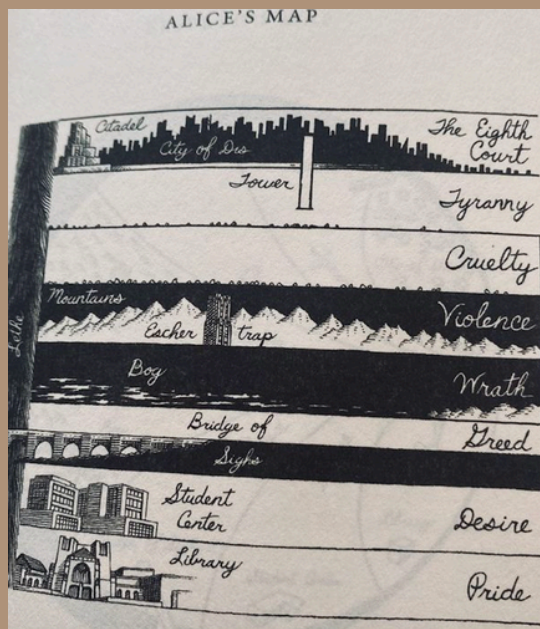 ALICE'S MAP
Citadel
City of Dis
The Eighth
Court
Tower
Tyranny
Cruelty
Mountains
Violence
Escher trap
Lethe
Bog
Wrath
Bridge of
Greed
Sighs
Student
Center
Desire
Library
Pride